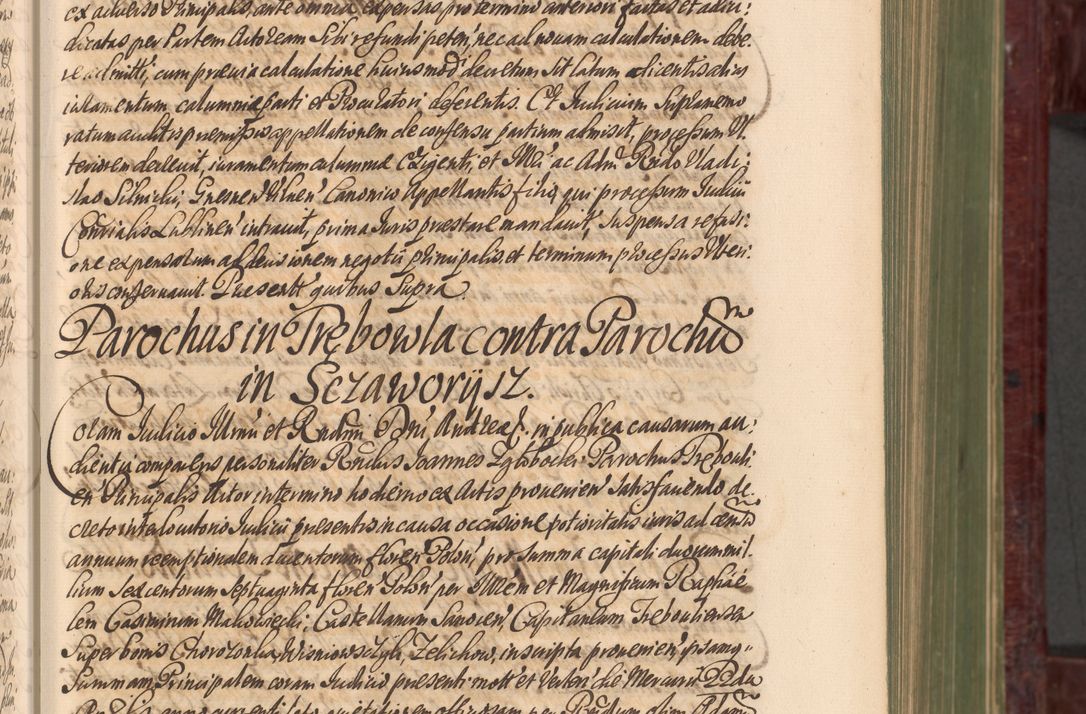 ex adverso Principalis, ante omnia expensas pro termino anteriori factas et adiu:
dicatas per Partem Actoream Sibi refundi peten, nec ad novam calculationem debe:
re admitti, cum prævia calculatione huiusmod decretum sit latum
iuramentum calumniæ parti et Procuratori deferentis. Et Iudicium Supramemo
ratum auditis præmissis appellationem de consensu partium admisit, processum Ul
teriorem decrevit, iuramentum calumniæ Exigenti, et Ill ac Adm Rndo Vladi:
slao Silnicki, Gnesnen Vilnen Canonico Appellantis filio, qui processum Iudicii
Consialis Lublinen intravit, prima Iuris præstare mandavit, suspensa refusi:
one expensarum ad decisionem negotii principalis, et terminum processus Uteri:
oris conservavit. Præsentt quibus Supra.
Parochus in Trębowla contra Parochũ
in Sczaworyisz.
Coram Iudicio Illmi et Rndmi Dni Andreæ in publica causarum au:
dientia comparens personaliter Rndus Ioannes Zgłobocki Parochus Trębouli:
en Principalis Actor in termino hodierno ex Actis provenien satisfaciendo de:
creto interlocutorio Iudicii præsentis in causa occasione potioritatis iuris ad censũ
annuum reemptionalem ducentorum floren Polon, pro summa capitali duorum mil:
lium sexcentorum septuaginta floren Polon per Illem et Magnificum Raphaë
lem Casimirum Makowiecki, Castellanum Capitaneum Trebouliensem
Super bonis Chorozonka, Wisniowczyk, Zelichow, inscripta provenien ipsamq
Summam Principalem coram Iudicio præsenti mott et Verten die Mercurii
anno currenti lato per Rndum olim Adamũ